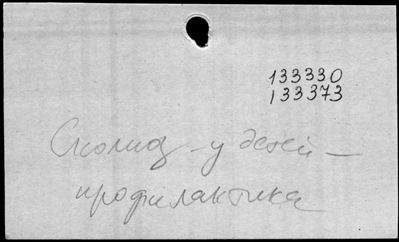 133330
133373
Сколиоз - у детей -
профилактика